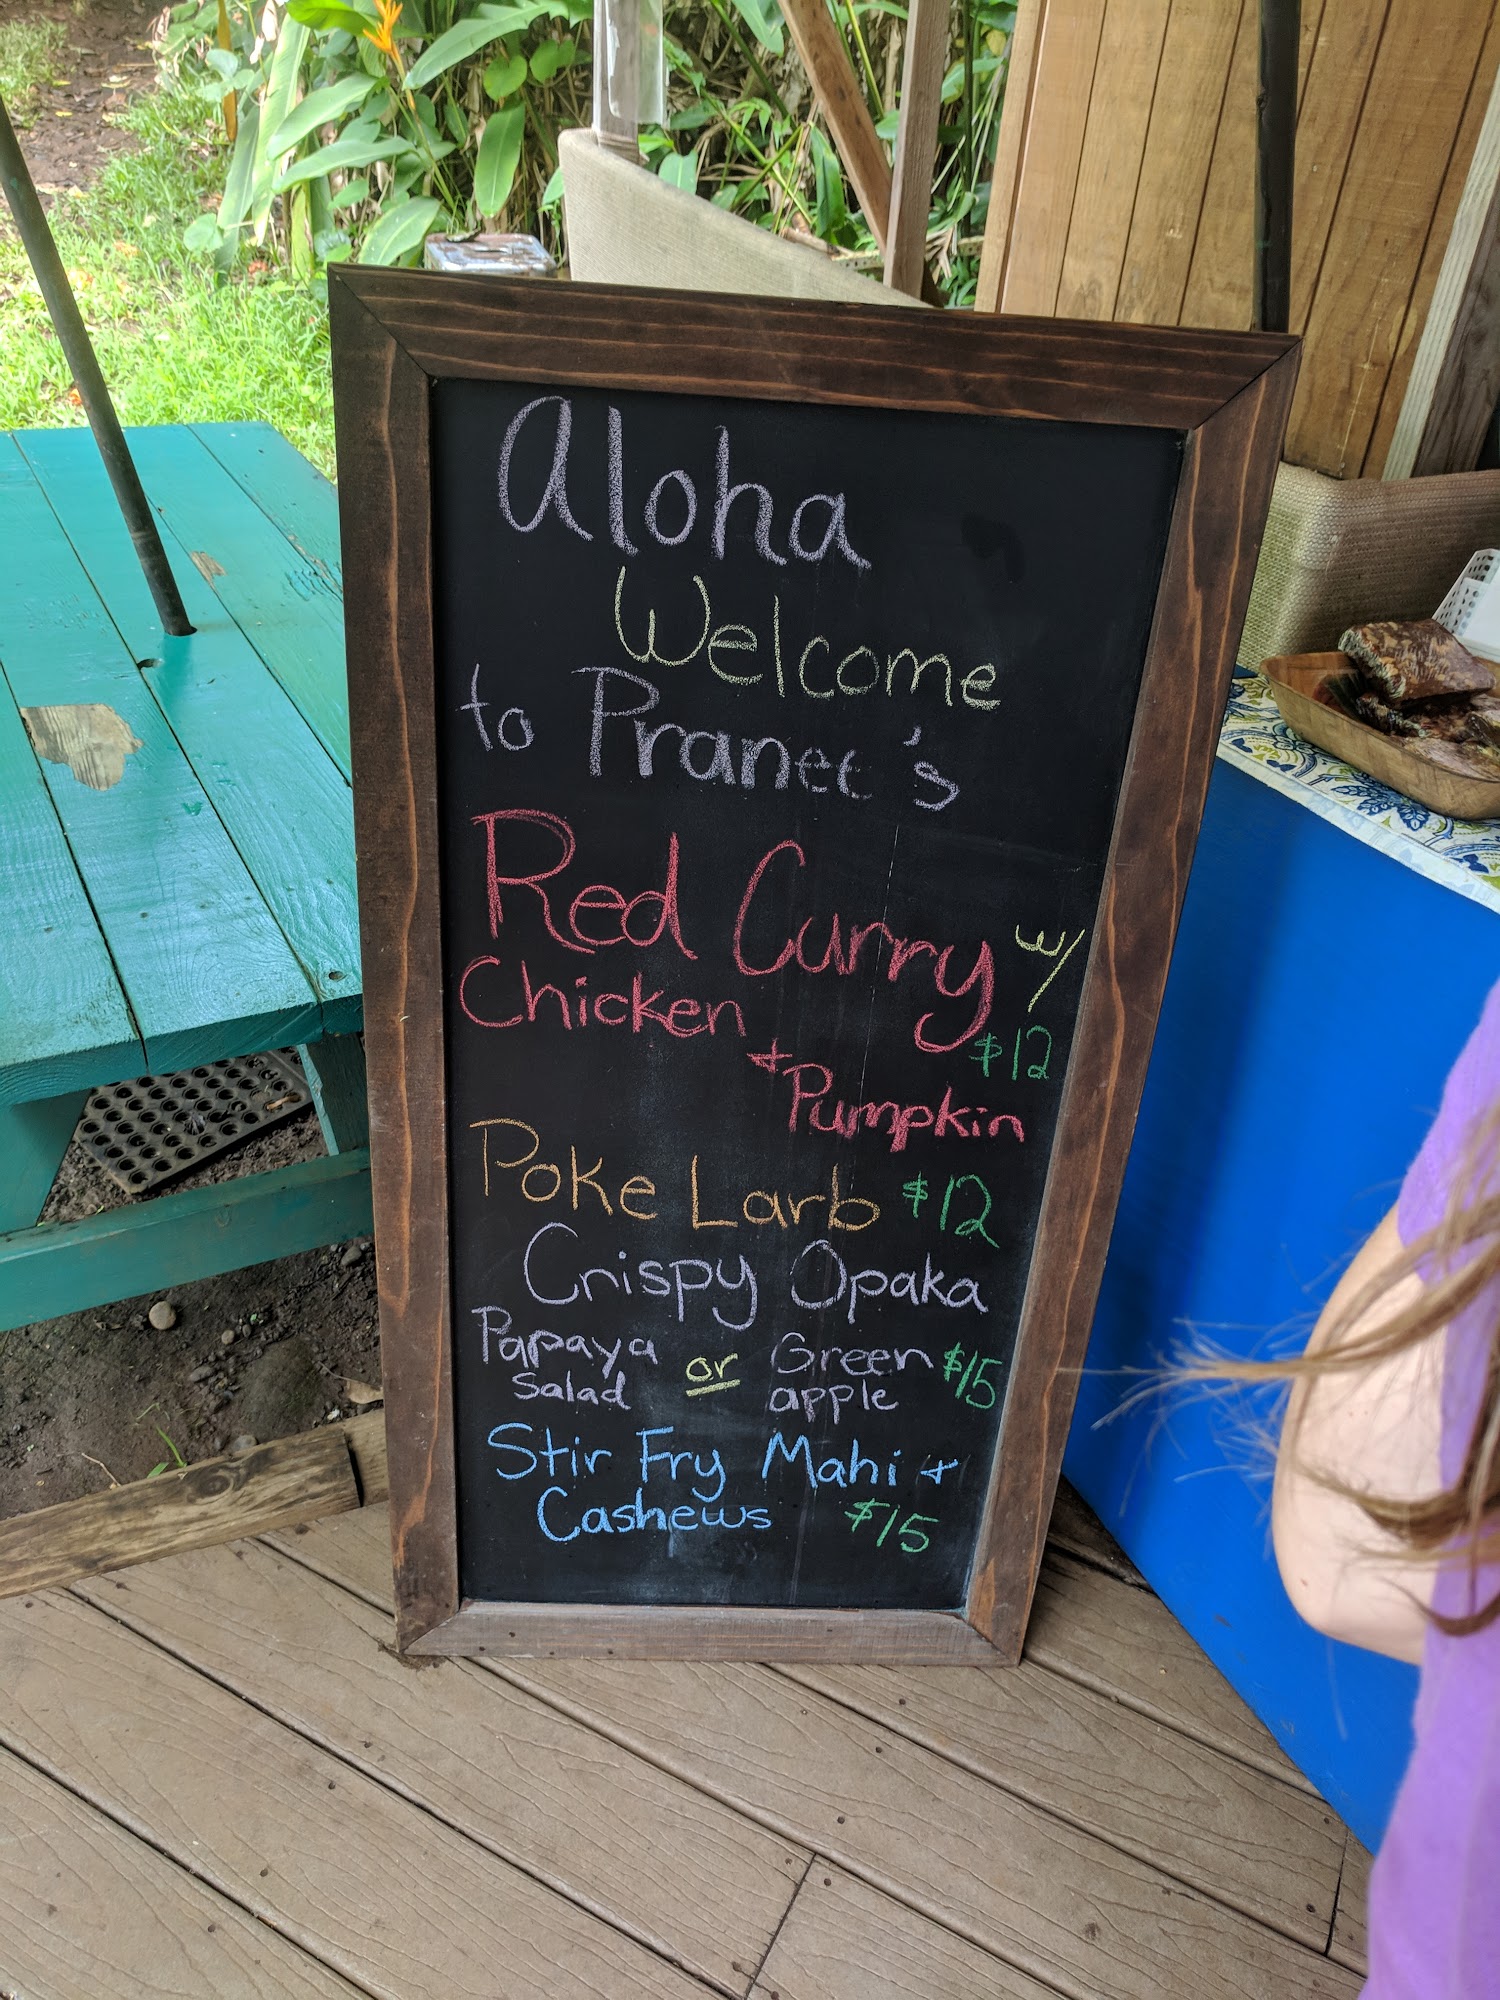 Aloha
Welcome
to Pranee's
Red Curry w/
Chicken $12
+ Pumpkin
Poke Larb $12
Crispy Opaka
Papaya or Green $15
Salad apple
Stir Fry Mahi +
Cashews $15